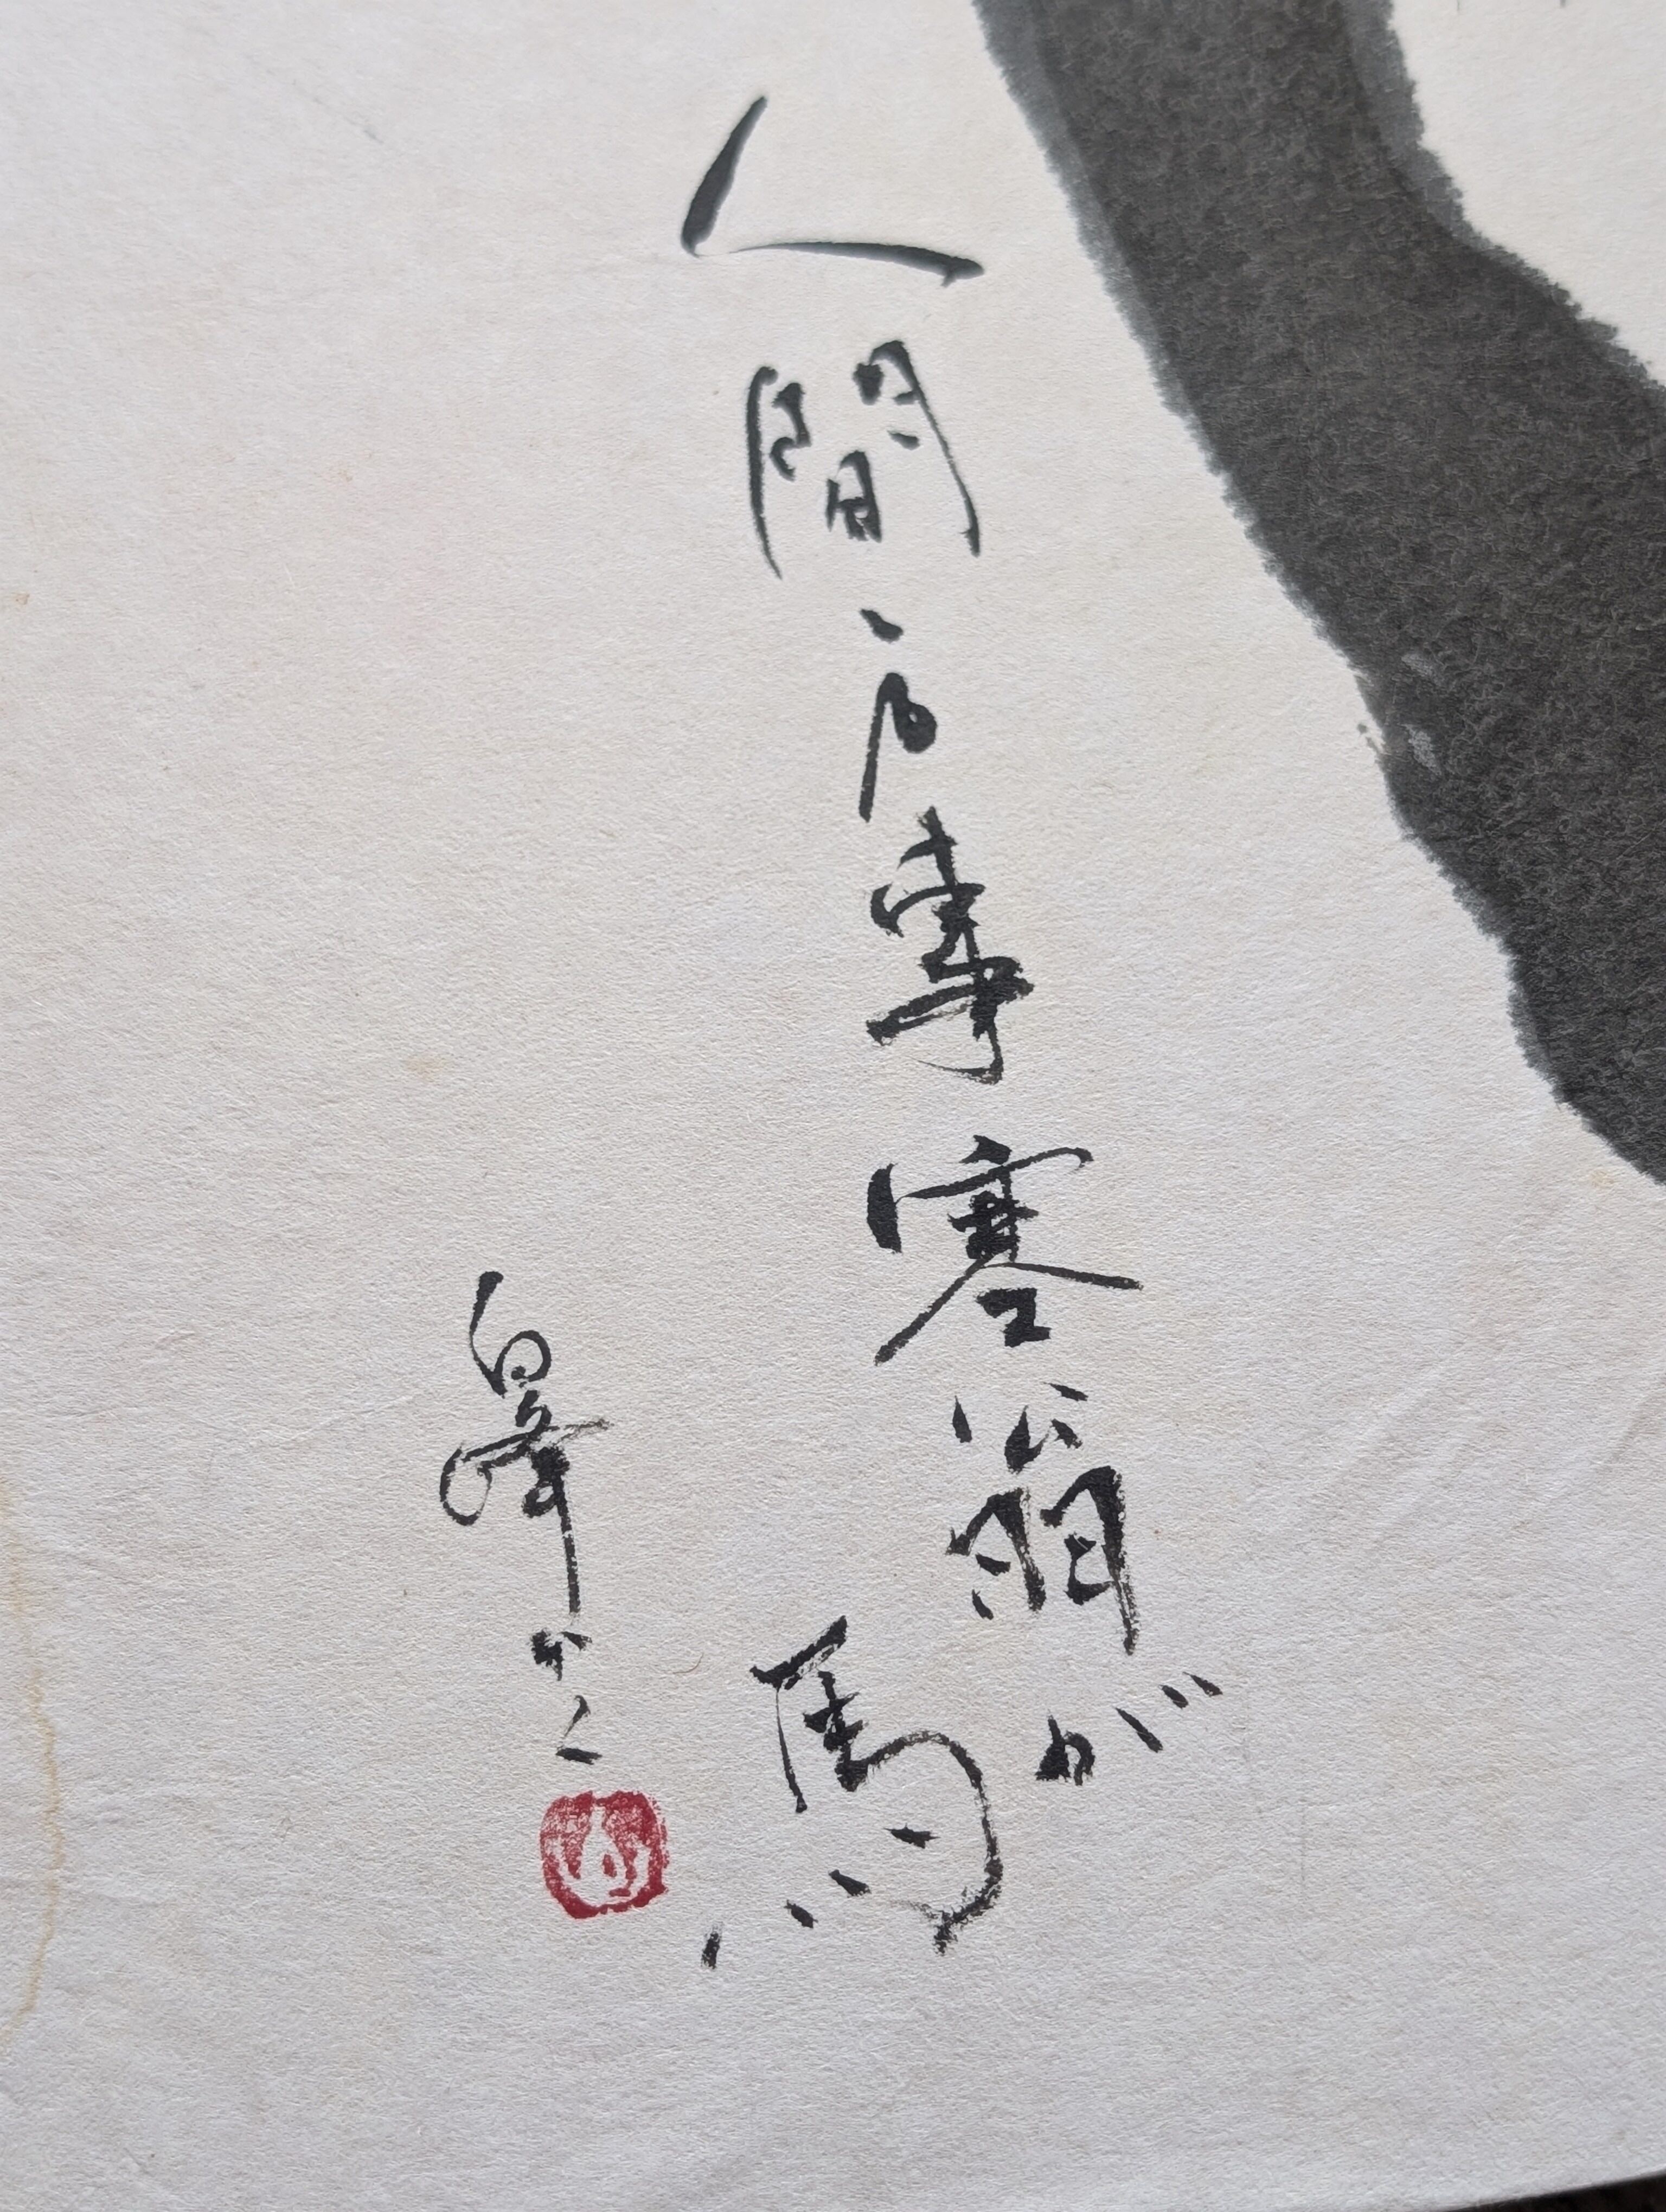 人間万事塞翁が馬
白峯かく